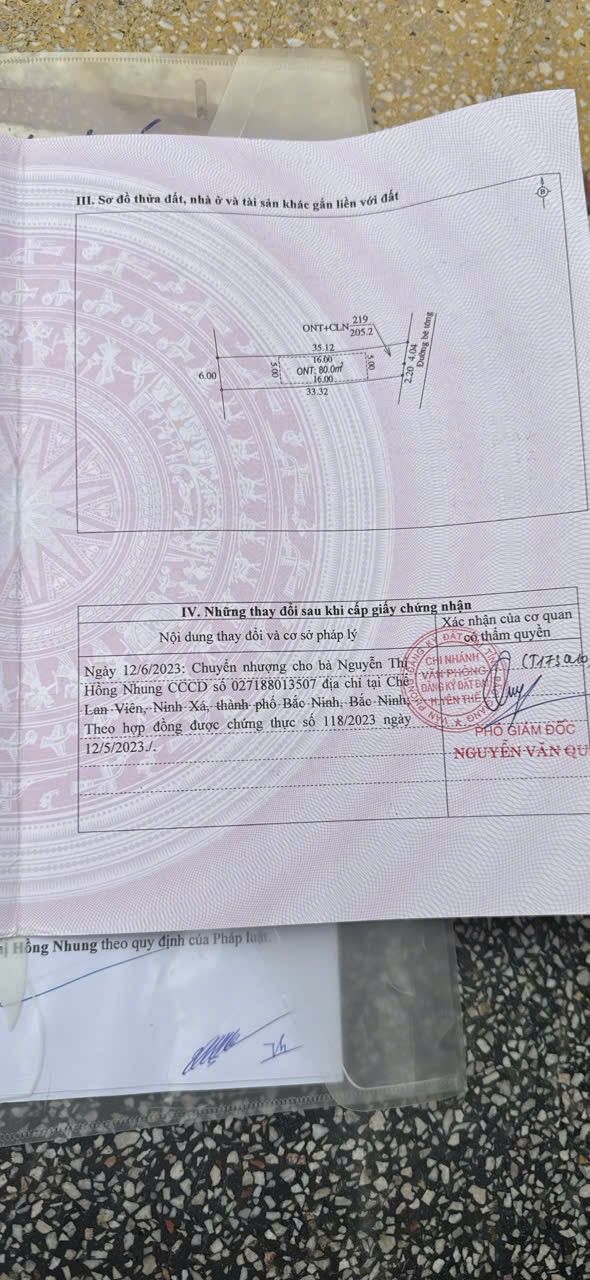 III. Sơ đồ thửa đất, nhà ở và tài sản khác gắn liền với đất
B
ONT+CLN 219
205.2
35.12
16.00
6.00
5.00
ONT: 80.0m²
5.00
16.00
33.32
2.20 4.04
Đường bê tông
IV. Những thay đổi sau khi cấp giấy chứng nhận
Nội dung thay đổi và cơ sở pháp lý
Xác nhận của cơ quan
có thẩm quyền
Ngày 12/6/2023: Chuyển nhượng cho bà Nguyễn Thị
Hồng Nhung CCCD số 027188013507 địa chỉ tại Chế
Lan Viên, Ninh Xá, thành phố Bắc Ninh, Bắc Ninh;
Theo hợp đồng được chứng thực số 118/2023 ngày
12/5/2023./.
CHI NHÁNH
VĂN PHÒNG
ĐĂNG KÝ ĐẤT ĐAI
YÊN THẾ
PHÓ GIÁM ĐỐC
NGUYỄN VĂN QU
Hồng Nhung theo quy định của Pháp luật.